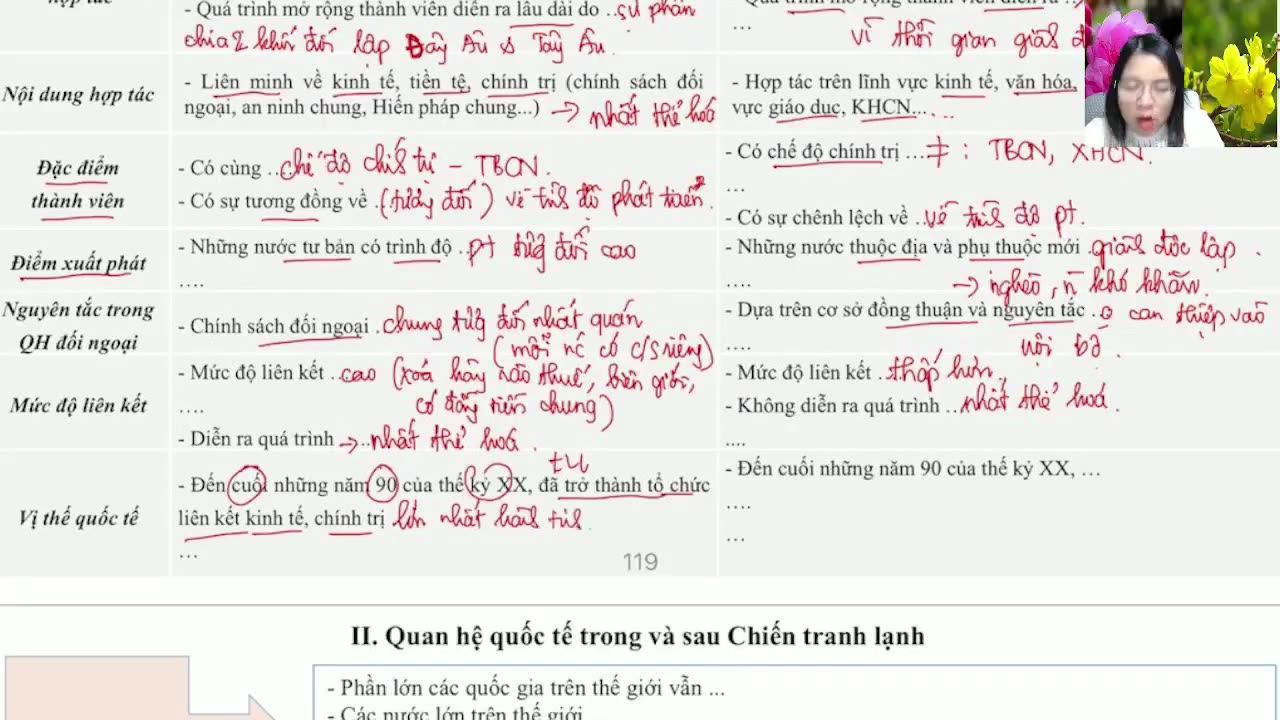 hợp tác
- Quá trình mở rộng thành viên diễn ra lâu dài do ..sự phân
chia 2 khối đối lập Đây Âu & Tây Âu.
- Quá trình mở rộng thành viên diễn ra ..
...
vì thời gian giành đ
Nội dung hợp tác
- Liên minh về kinh tế, tiền tệ, chính trị (chính sách đối
ngoại, an ninh chung, Hiến pháp chung...) → nhất thể hoá
- Hợp tác trên lĩnh vực kinh tế, văn hóa,
vực giáo dục, KHCN...
Đặc điểm
thành viên
- Có cùng ..chế độ chính trị – TBCN.
- Có sự tương đồng về .(tương đối) về trình độ phát triển.
- Có chế độ chính trị ...≠ : TBCN, XHCN.
...
- Có sự chênh lệch về ..về trình độ pt.
Điểm xuất phát
- Những nước tư bản có trình độ .pt tương đối cao
....
- Những nước thuộc địa và phụ thuộc mới .giành độc lập .
....
→ nghèo, n khó khăn.
Nguyên tắc trong
QH đối ngoại
- Chính sách đối ngoại .chung tương đối nhất quán
(mỗi nc có c/s riêng)
- Dựa trên cơ sở đồng thuận và nguyên tắc .o can thiệp vào
....
nội bộ .
Mức độ liên kết
- Mức độ liên kết ..cao (xoá hàng rào thuế, biên giới,
....
có đồng tiền chung)
- Diễn ra quá trình →..nhất thể hoá .
- Mức độ liên kết ..thấp hơn
- Không diễn ra quá trình ..nhất thể hoá .
....
Vị thế quốc tế
- Đến cuối những năm 90 của thế kỷ XX, đã trở thành tổ chức
liên kết kinh tế, chính trị lớn nhất hành tinh
...
- Đến cuối những năm 90 của thế kỷ XX, ...
....
...
119
II. Quan hệ quốc tế trong và sau Chiến tranh lạnh
- Phần lớn các quốc gia trên thế giới vẫn ...
- Các nước lớn trên thế giới ...